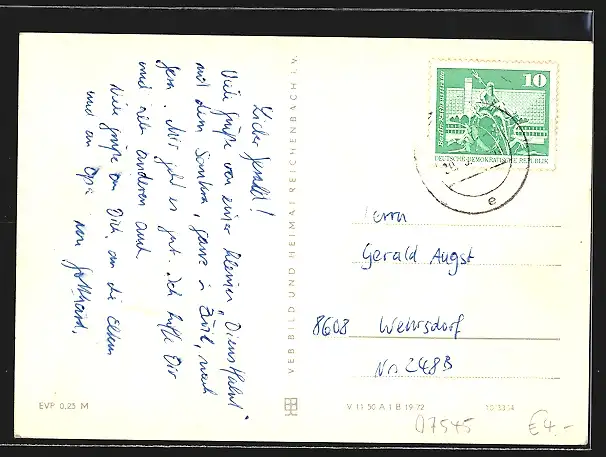 Lieber Gerald!
Viele Grüße von einer kleinen „Dienstfahrt"
mit dem , ganz in Zivil, nach
Gera. Mir geht es gut. Ich hoffe Dir
und allen anderen auch.
Viele Grüße an Dich, an die Eltern
und an Opa von Gotthard.
VEB BILD UND HEIMAT REICHENBACH I. V.
10
DEUTSCHE DEMOKRATISCHE REPUBLIK
e
Herrn
Gerald Augst
8608 Wehrsdorf
Nr. 248B
EVP 0,25 M
V 11 50 A 1 B 19 72
07545
€4.-